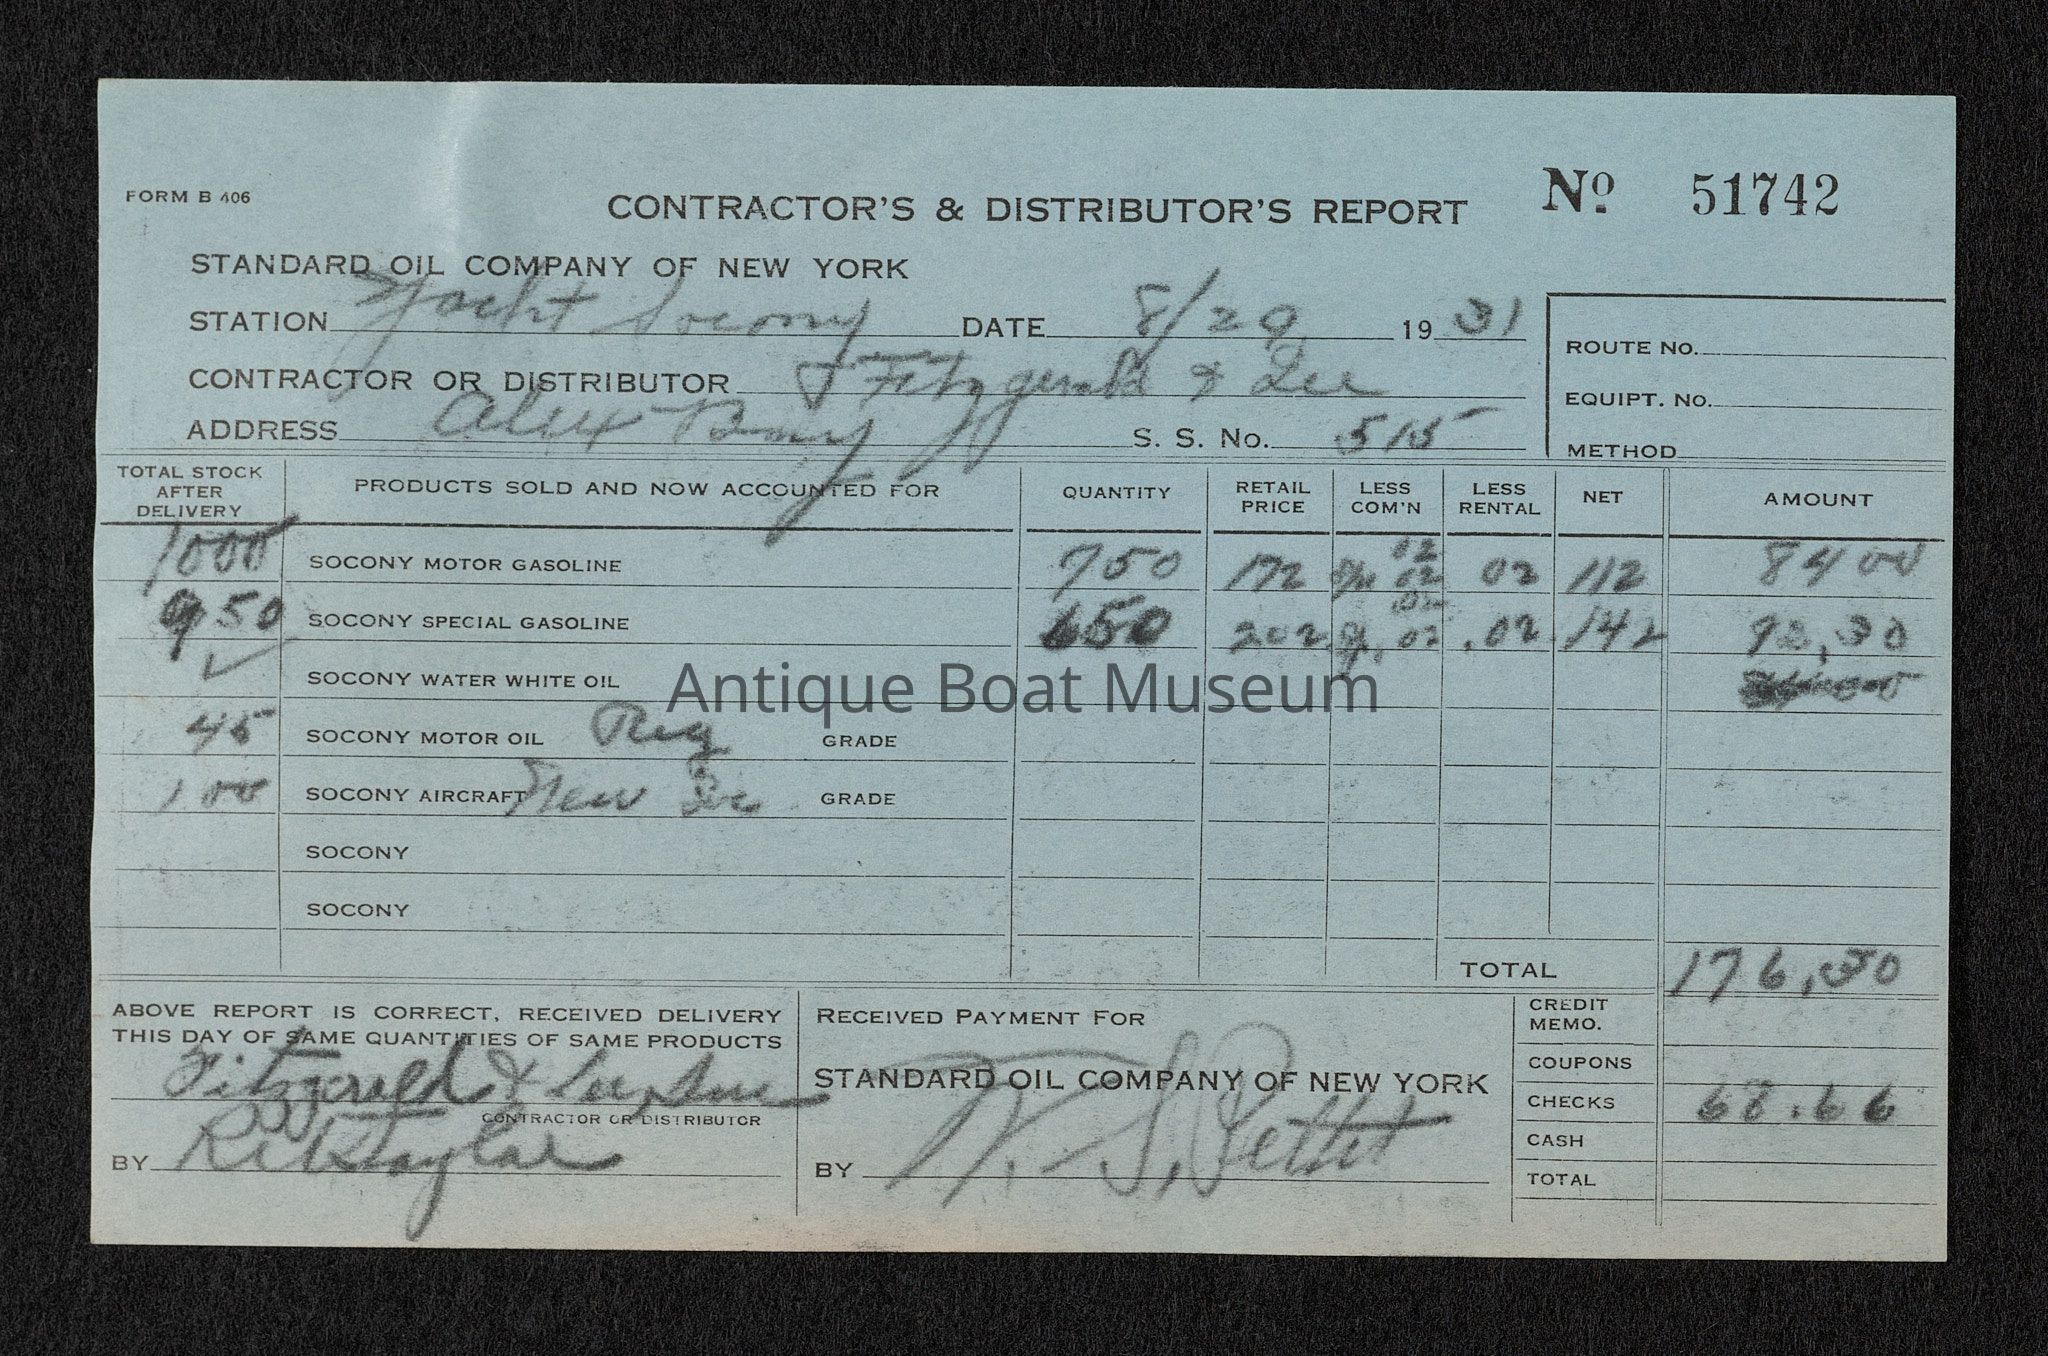 FORM B 406
CONTRACTOR'S & DISTRIBUTOR'S REPORT
No 51742
STANDARD OIL COMPANY OF NEW YORK
STATION Yacht Socony DATE 8/29 1931
ROUTE NO.
CONTRACTOR OR DISTRIBUTOR Fitzgerald & Lee
EQUIPT. NO.
ADDRESS Alex Bay S. S. No. 515
METHOD
TOTAL STOCK AFTER DELIVERY PRODUCTS SOLD AND NOW ACCOUNTED FOR QUANTITY RETAIL PRICE LESS COM'N LESS RENTAL NET AMOUNT
1000 SOCONY MOTOR GASOLINE 750 172 02 02 .02 112 84 00
950 SOCONY SPECIAL GASOLINE 650 202 02 .02 .02 142 92.30
SOCONY WATER WHITE OIL
45 SOCONY MOTOR OIL Reg GRADE
100 SOCONY AIRCRAFT New GRADE
SOCONY
SOCONY
TOTAL 176.30
ABOVE REPORT IS CORRECT, RECEIVED DELIVERY
THIS DAY OF SAME QUANTITIES OF SAME PRODUCTS
Fitzgerald & Lee
CONTRACTOR OR DISTRIBUTOR
BY
RECEIVED PAYMENT FOR
STANDARD OIL COMPANY OF NEW YORK
BY S. Pettit
CREDIT MEMO.
COUPONS
CHECKS 68.66
CASH
TOTAL
Antique Boat Museum